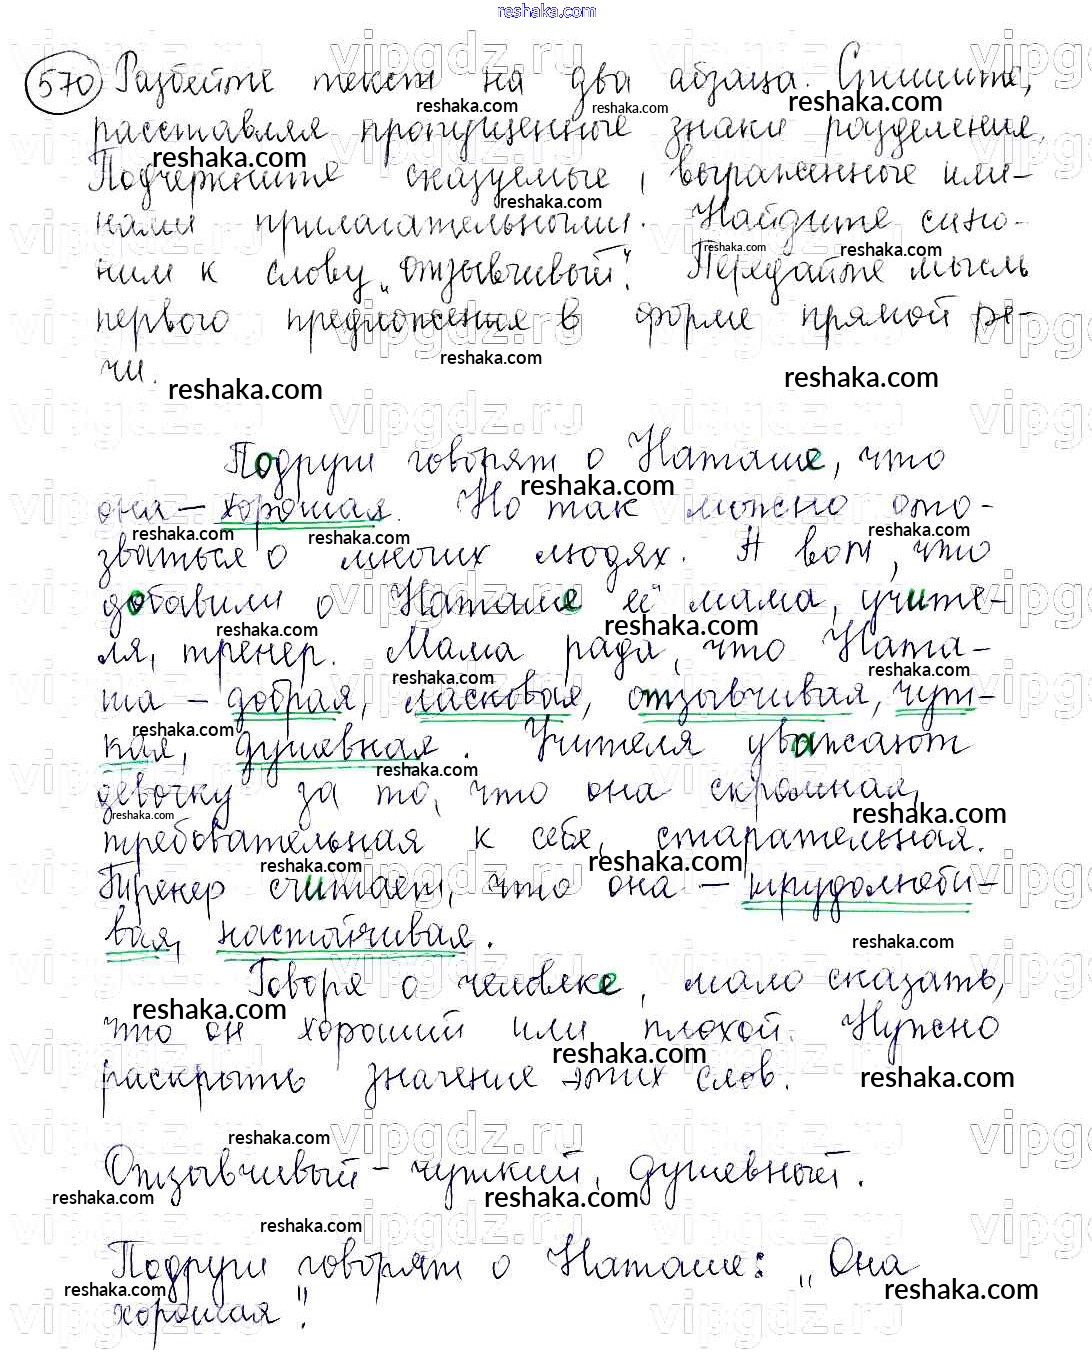 reshaka.com
570 Разбейте текст на два абзаца. Спишите,
расставляя пропущенные знаки разделения.
Подчеркните сказуемые, выраженные име-
нами прилагательными. Найдите сино-
ним к слову „отзывчивый". Передайте мысль
первого предложения в форме прямой ре-
чи.
Подруги говорят о Наташе, что
она – хорошая. Но так можно ото-
зваться о многих людях. А вот, что
добавили о Наташе её мама, учите-
ля, тренер. Мама рада, что Ната-
ша – добрая, ласковая, отзывчивая, чут-
кая, душевная. Учителя уважают
девочку за то, что она скромная,
требовательная к себе, старательная.
Тренер считает, что она – трудолюби-
вая, настойчивая.
Говоря о человеке, мало сказать,
что он хороший или плохой. Нужно
раскрыть значение этих слов.
Отзывчивый – чуткий, душевный.
Подруги говорят о Наташе: „Она
хорошая"!